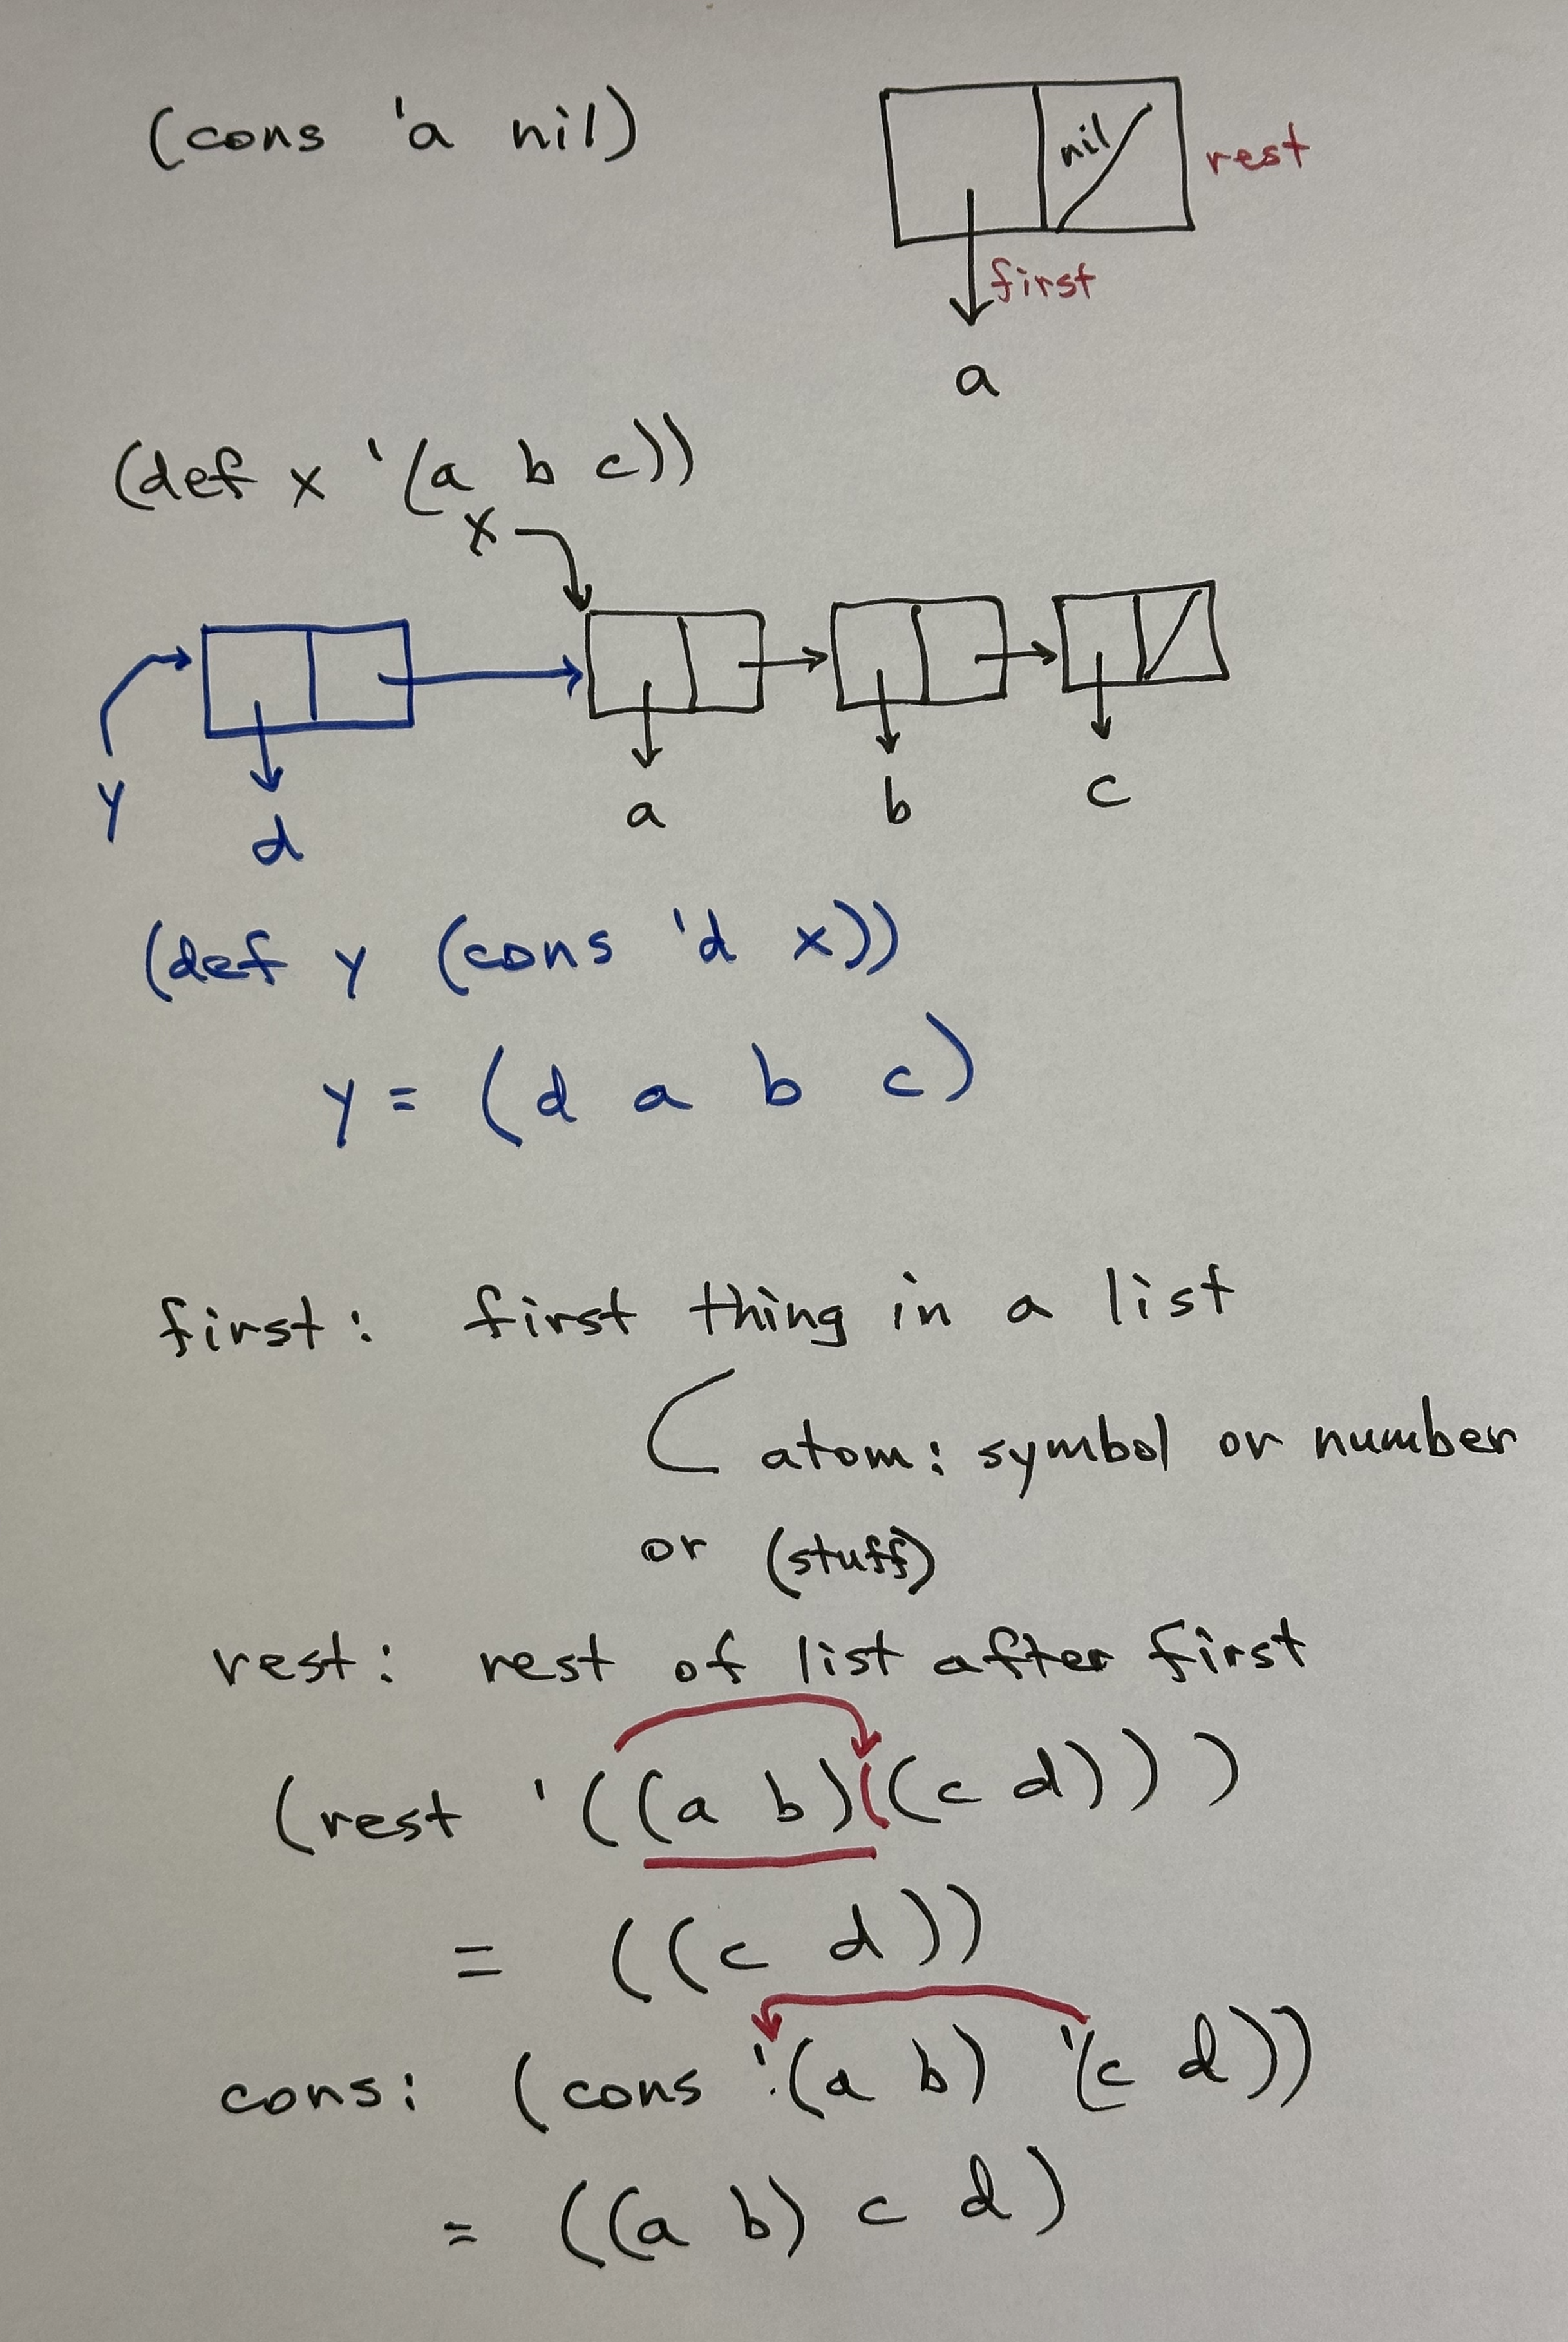 (cons 'a nil)
nil
rest
first
a
(def x '(a b c))
x
y
d
a
b
c
(def y (cons 'd x))
y = (d a b c)
first: first thing in a list
atom: symbol or number
or (stuff)
rest: rest of list after first
(rest '((a b)((c d)))
= ((c d))
cons: (cons '(a b) '(c d))
= ((a b) c d)